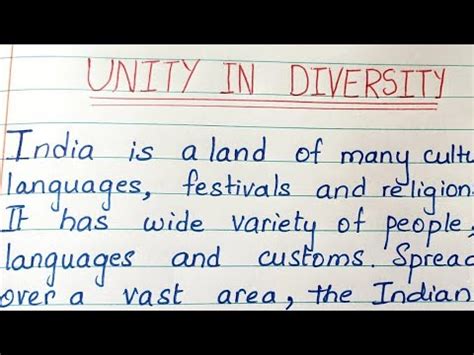 UNITY IN DIVERSITY
India is a land of many cultu
languages, festivals and religion.
It has wide variety of people,
languages and customs. Spread
over a vast area, the Indian